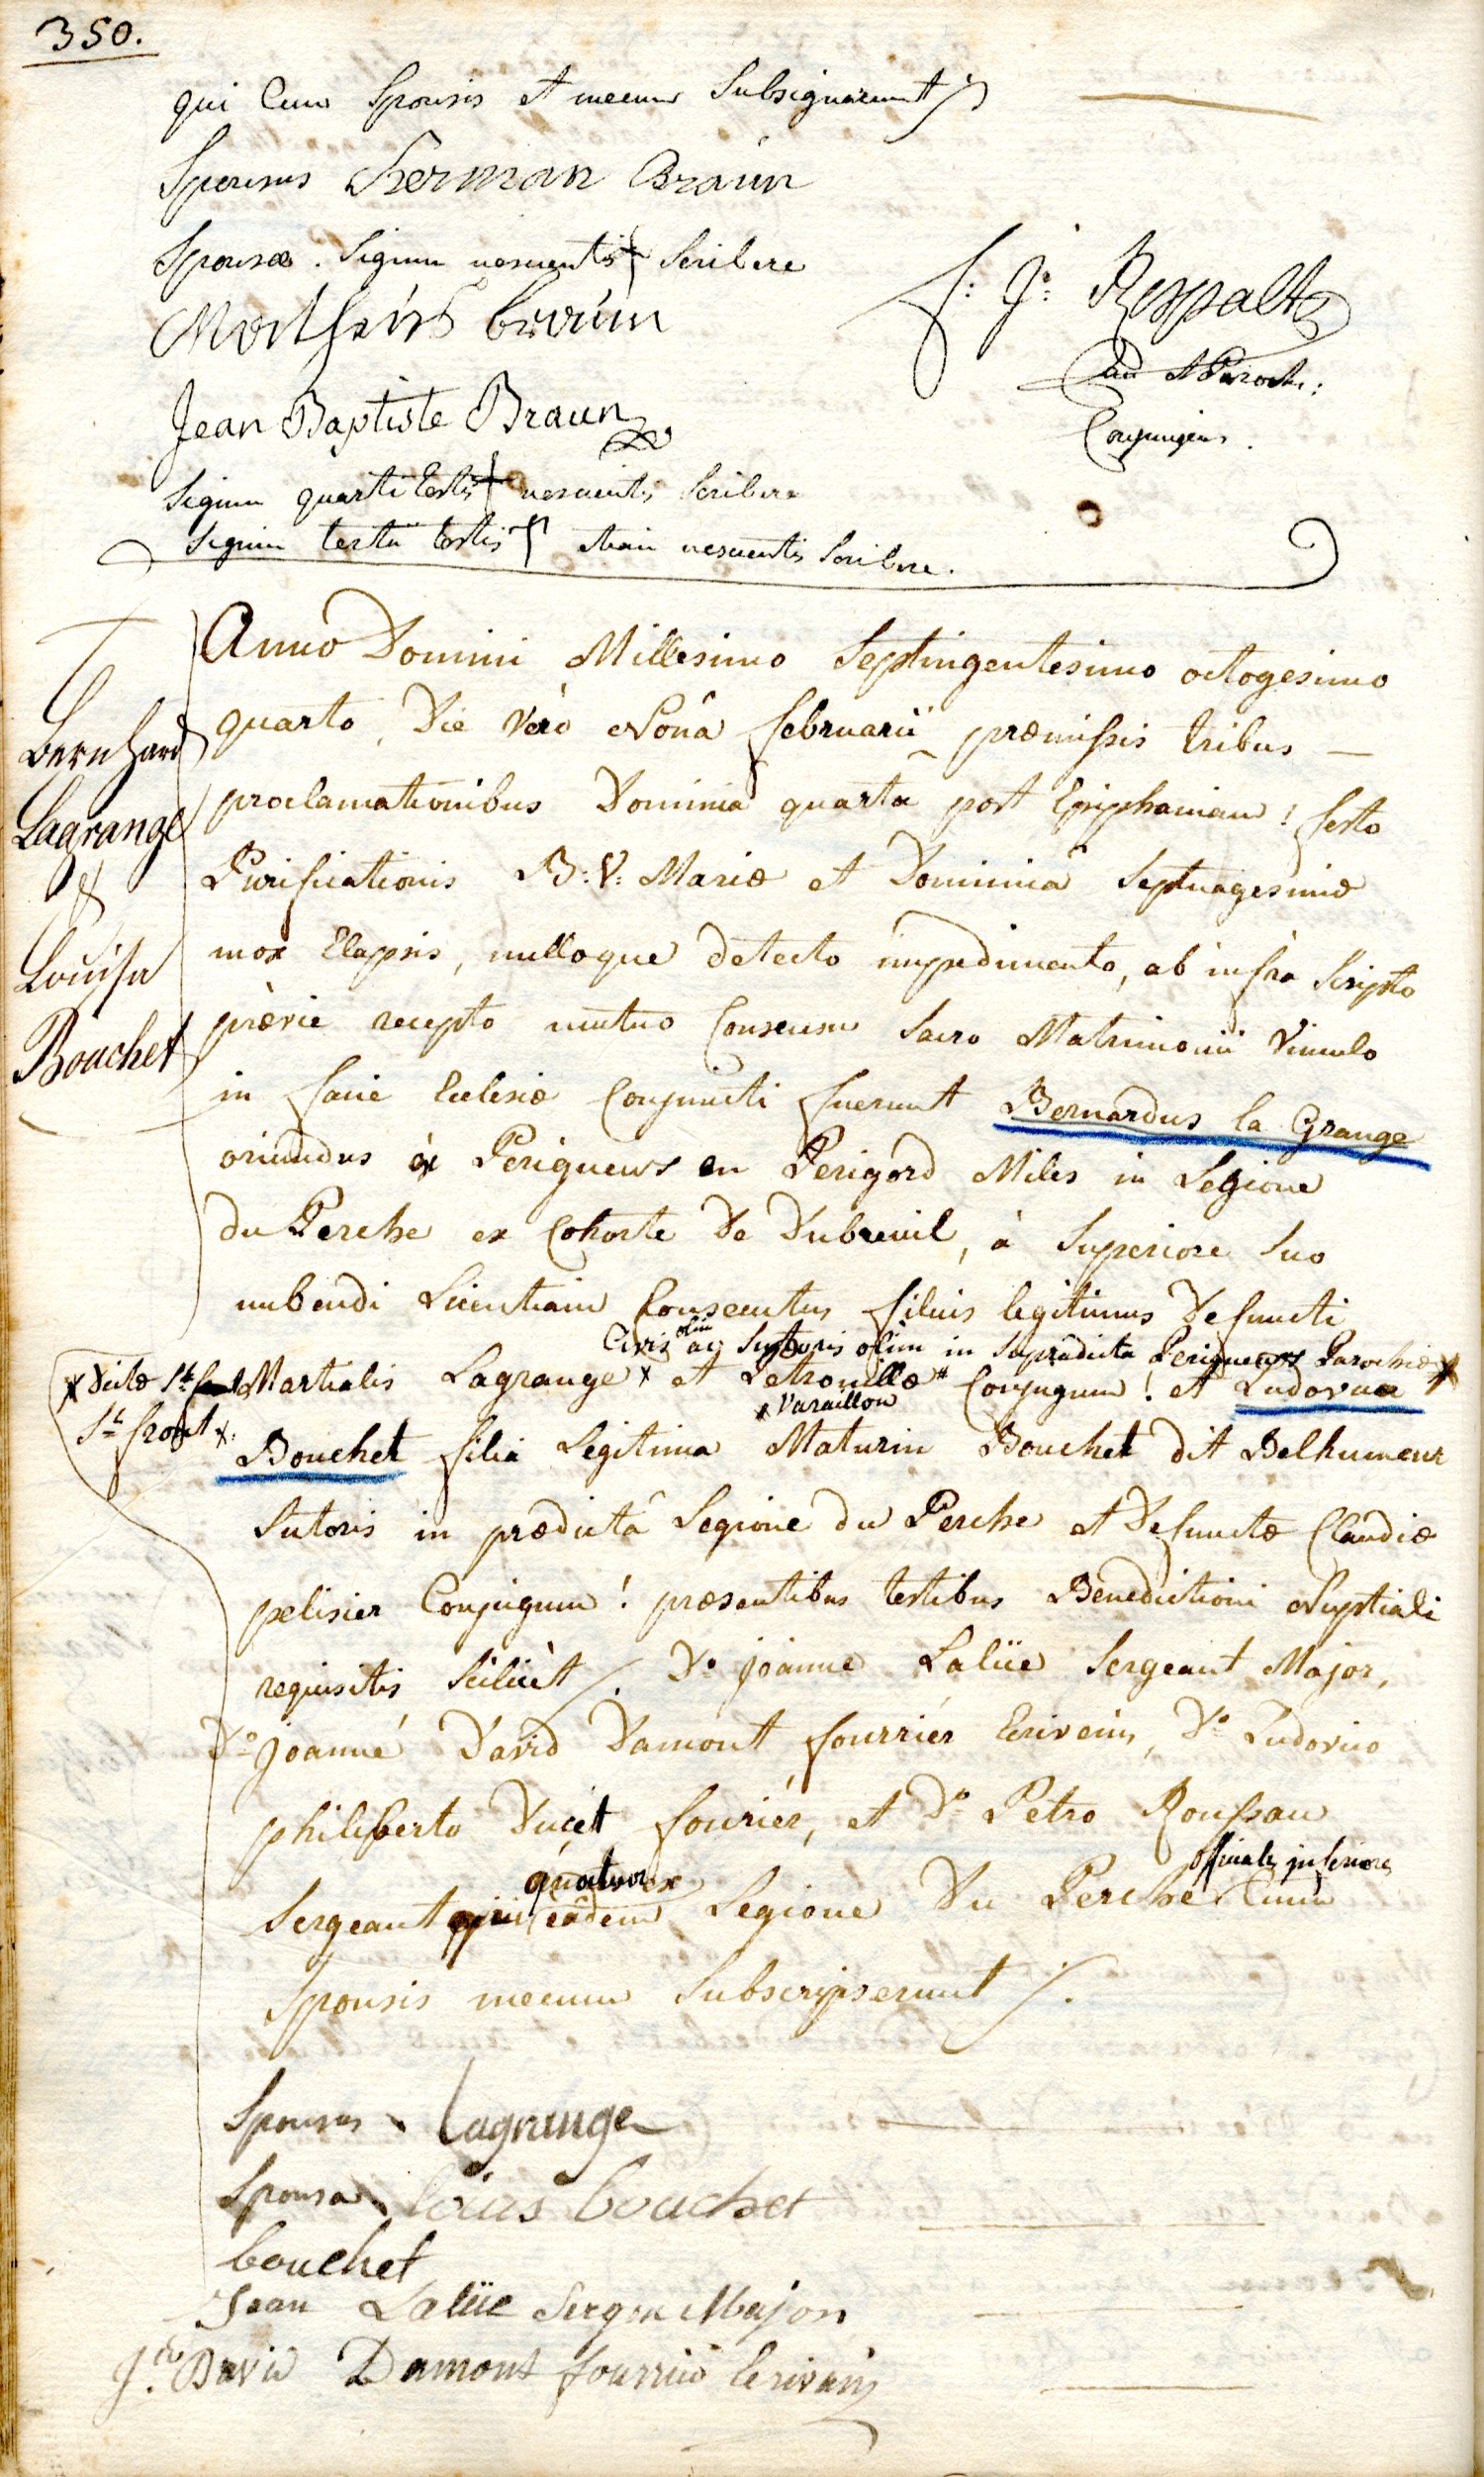 350.
qui Cum Sponsis et mecum Subsignarunt
Sponsus Herman Braun
Sponsæ. Signum nescientis Scribere
Mathias Braun
F: J: Respalts
Conjungens.
Jean Baptiste Braun
Signum quarti testis nescientis Scribere
Signum tertii testis etiam nescientis Scribere.
Bernhard
Lagrange
&
Louisa
Bouchet
Anno Domini Millesimo Septingentesimo octogesimo
quarto, Die Vero Nonâ februarii præmissis tribus
proclamationibus Dominica quarta post Epiphaniam! festo
Purificationis B: V: Mariæ et Dominicâ Septuagesimæ
mox Elapsis, nulloque detecto impedimento, ab infra Scripto
prævie recepto mutuo Consensu Sacro Matrimonii Vinculo
in facie Ecclesiæ Conjuncti fuerunt Bernardus la Grange
oriundus ex Periguews en Perigord Miles in Legione
du Perche ex Cohorte De Dubreuil, à Superiore Suo
nubendi Licentiam Consecutus filius legitimus Defuncti
Civis ac Sutoris olim in Supradicta Periguews Parochiæ
x Dictæ St
St front x.
Martialis Lagrange x et Petronillæ Conjugum! et Ludovica
x Varaillon
Bouchet filia Legitima Maturin Bouchet dit Belhumeur
Sutoris in prædictâ Legione du Perche et Defunctæ Claudiæ
pelisier Conjugum! præsentibus testibus Benedictioni Nuptiali
requisitis Scilicèt /. Do joanne Laliie Sergeant Major,
Do joanne David Damont fourriér Ecrivein, Do Ludovico
philiberto Ducet fouriér, et Do Petro Roussau
quatuor ex
officiales inferiores
Sergeant eâdem Legione Du Perche Cum
Sponsis mecum Subscripserunt /.
Sponsus Lagrange
Sponsa louis bouchet
bouchet
Jean Laliie Serge Major
J. David Damont fourrié Ecrivain